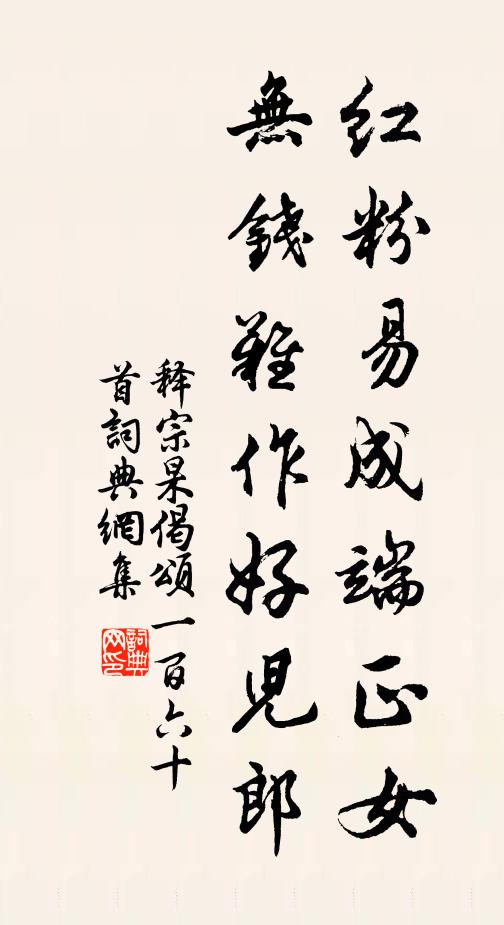 紅粉易成端正女
無錢難作好兒郎
释宗杲偈頌一百六十
首詞典網集
詞典网印